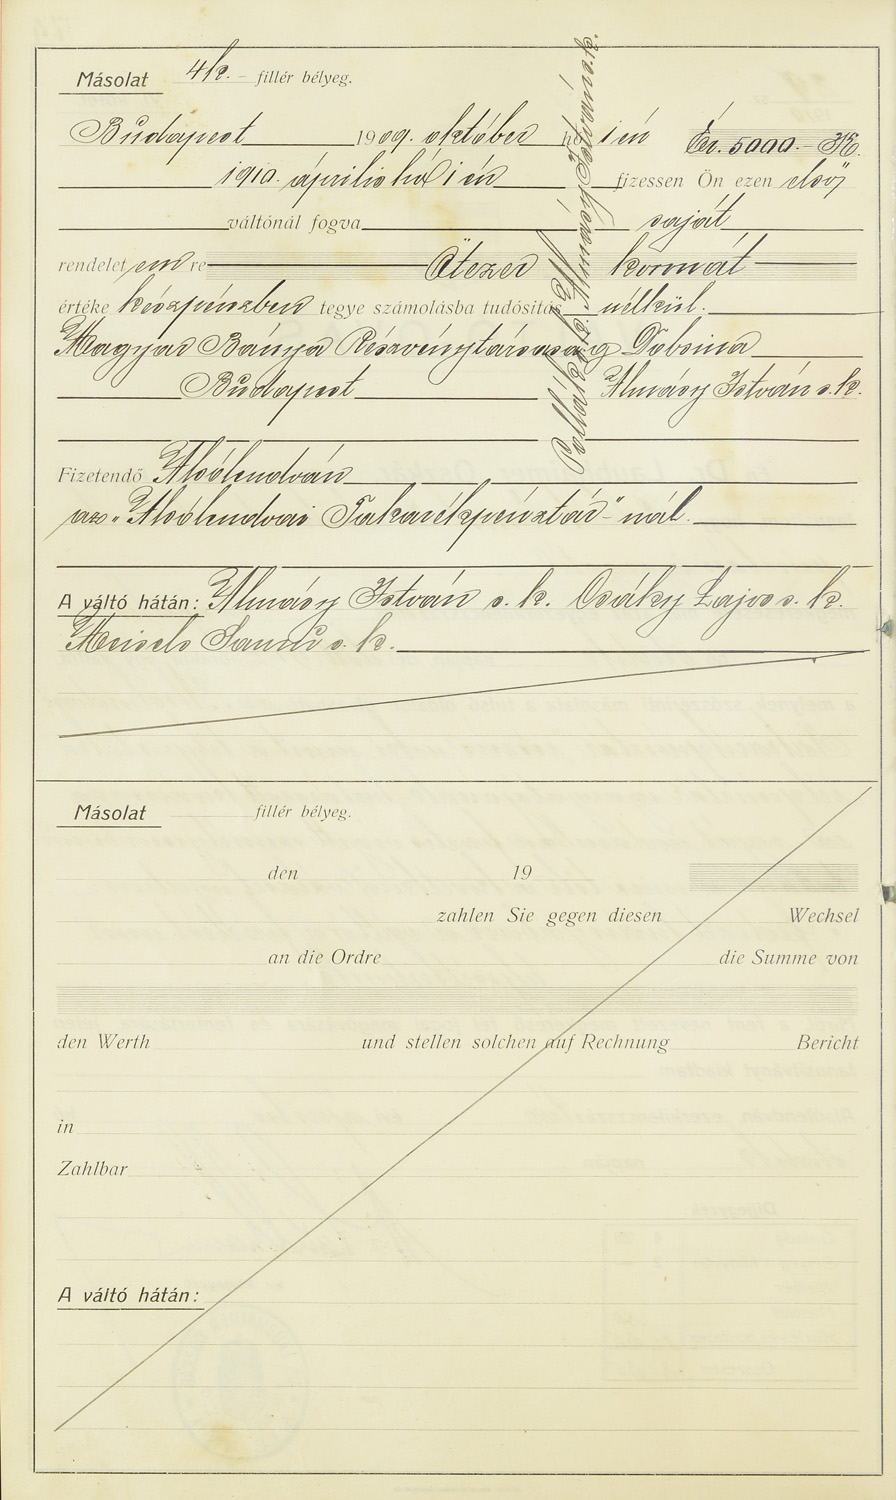 Másolat 4k.– fillér bélyeg.
Budapest 1909. október hó 1én Ér. 5000.– K.
1910. április hó 1én fizessen Ön ezen első
váltónál fogva saját
rendeletemre Ötezer koronát
értéke készpénzben tegye számolásba tudósítás nélkül.
Magyar Bánya Részvénytársaság Dobsina
Budapest Almásy István s. k.
Almásy István s. k.
Fizetendő Alsólendván
az „Alsólendvai Takarékpénztár“nál.
A váltó hátán: Almásy István s. k. Csáky Lajos s. k.
Meisels Samu s. k.
Másolat fillér bélyeg.
den 19
zahlen Sie gegen diesen Wechsel
an die Ordre die Summe von
den Werth und stellen solchen auf Rechnung Bericht
in
Zahlbar
A váltó hátán: